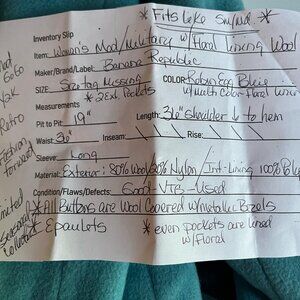 * Fits Like Sm/Md. *
Inventory Slip
Item: Women's Mod/Military w/Floral Lining Wool
Maker/Brand/Label: Banana Republic
SIZE: Size tag Missing COLOR: Robin Egg Blue
* 2 Ext. Pockets w/ multi Color floral liner
Measurements
Pit to Pit: 19" Length: 36" shoulder to hem
Waist: 36" Inseam: Rise:
Sleeve: Long
Material: Exterior: 80% Wool/20% Nylon / Int-Lining 100% Poly
Condition/Flaws/Defects: Good-VTG-Used
* All Buttons are Wool Covered w/metallic Bezels
* Epaulets * even pockets are lined
w/Floral
Mod
GoGo
Y2K
Retro
Fashion
forward
Limited
seasonal